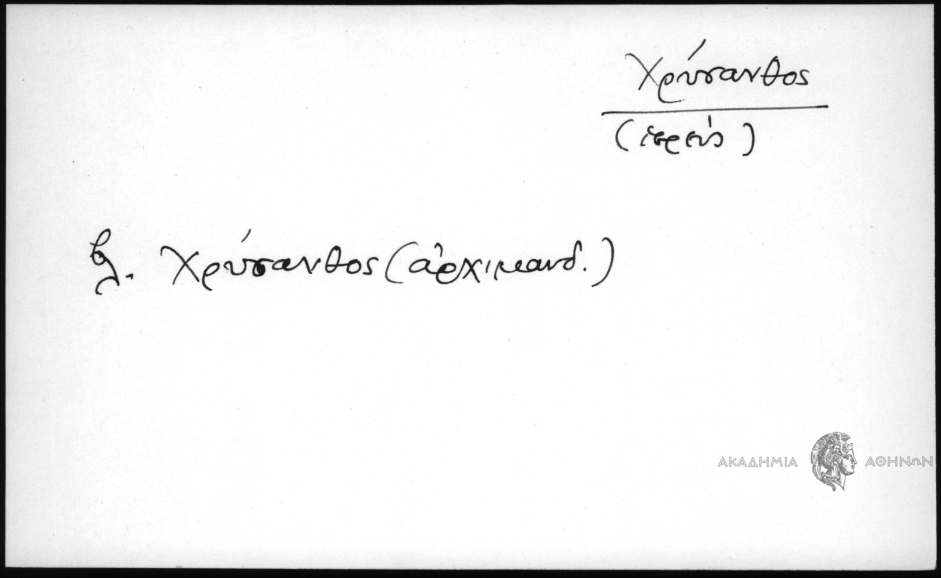 Χρύσανθος
(ἱερεύς)
βλ. Χρύσανθος (ἀρχιμανδ.)
ΑΚΑΔΗΜΙΑ ΑΘΗΝΩΝ